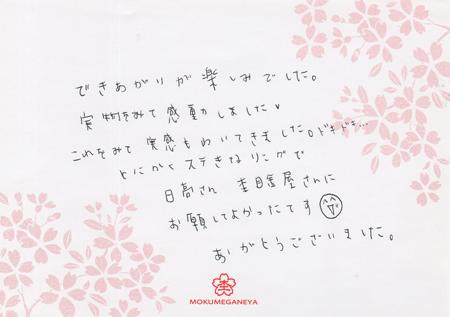 できあがりが楽しみでした。
実物をみて感動しました♥
これをみて 実感もわいてきました。ドキドキ…
とにかくステキなリングで
日高さん 杢目金屋さんに
お願してよかったです
ありがとうございました。
MOKUMEGANEYA